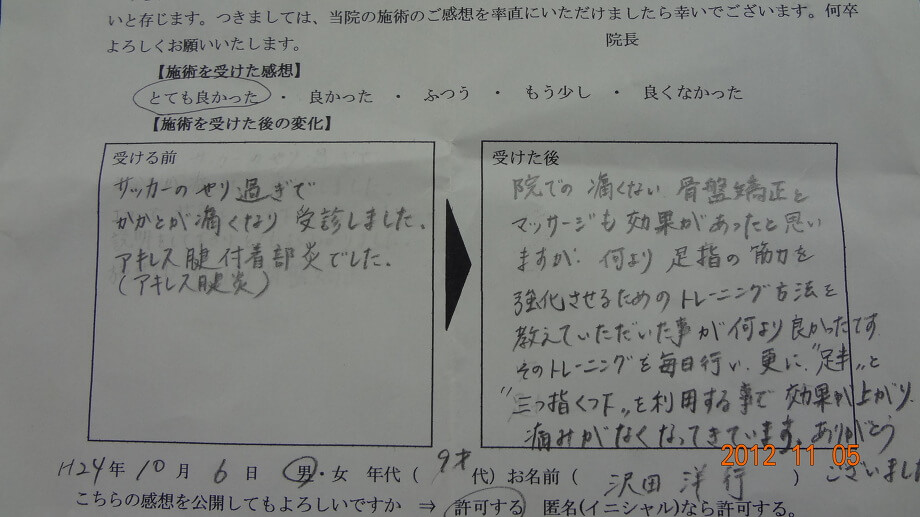 いと存じます。つきましては、当院の施術のご感想を率直にいただけましたら幸いでございます。何卒
よろしくお願いいたします。 院長
【施術を受けた感想】
とても良かった ・ 良かった ・ ふつう ・ もう少し ・ 良くなかった
【施術を受けた後の変化】
受ける前
サッカーのやり過ぎで
かかとが痛くなり 受診しました。
アキレス腱付着部炎でした。
(アキレス腱炎)
受けた後
院での 痛くない 骨盤矯正と
マッサージも効果があったと思い
ますが、何より 足指の筋力を
強化させるためのトレーニング方法を
教えていただいた事が何より良かったです
そのトレーニングを毎日行い、更に、"足半"と
"三つ指くつ下"を利用する事で 効果が上がり、
痛みがなくなってきています。ありがとう
ございました
H24年 10月 6日 男・女 年代(9才代)お名前(沢田 洋行)
こちらの感想を公開してもよろしいですか ⇒ 許可する 匿名(イニシャル)なら許可する。
2012 11 05